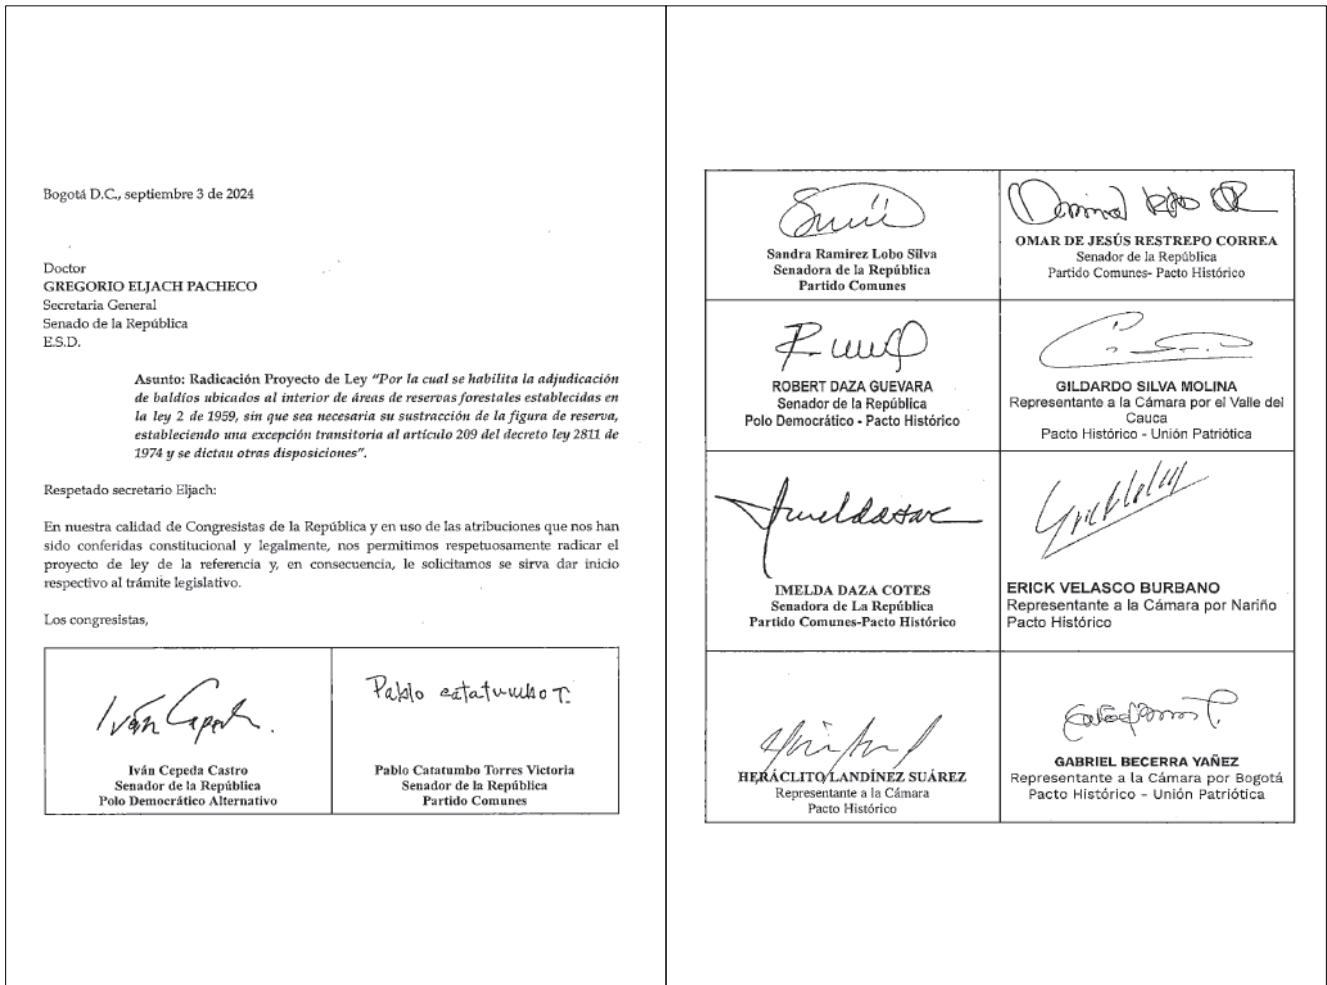 Bogotá D.C., septiembre 3 de 2024
Doctor
GREGORIO ELJACH PACHECO
Secretaria General
Senado de la República
E.S.D.
Asunto: Radicación Proyecto de Ley "Por la cual se habilita la adjudicación
de baldíos ubicados al interior de áreas de reservas forestales establecidas en
la ley 2 de 1959, sin que sea necesaria su sustracción de la figura de reserva,
estableciendo una excepción transitoria al artículo 209 del decreto ley 2811 de
1974 y se dictan otras disposiciones".
Respetado secretario Eljach:
En nuestra calidad de Congresistas de la República y en uso de las atribuciones que nos han
sido conferidas constitucional y legalmente, nos permitimos respetuosamente radicar el
proyecto de ley de la referencia y, en consecuencia, le solicitamos se sirva dar inicio
respectivo al trámite legislativo.
Los congresistas,
Iván Cepeda.
Iván Cepeda Castro
Senador de la República
Polo Democrático Alternativo
Pablo catatumbo T.
Pablo Catatumbo Torres Victoria
Senador de la República
Partido Comunes
Sandra Ramirez Lobo Silva
Senadora de la República
Partido Comunes
OMAR DE JESÚS RESTREPO CORREA
Senador de la República
Partido Comunes- Pacto Histórico
ROBERT DAZA GUEVARA
Senador de la República
Polo Democrático - Pacto Histórico
GILDARDO SILVA MOLINA
Representante a la Cámara por el Valle del
Cauca
Pacto Histórico - Unión Patriótica
IMELDA DAZA COTES
Senadora de La República
Partido Comunes-Pacto Histórico
ERICK VELASCO BURBANO
Representante a la Cámara por Nariño
Pacto Histórico
HERÁCLITO LANDÍNEZ SUÁREZ
Representante a la Cámara
Pacto Histórico
GABRIEL BECERRA YAÑEZ
Representante a la Cámara por Bogotá
Pacto Histórico - Unión Patriótica